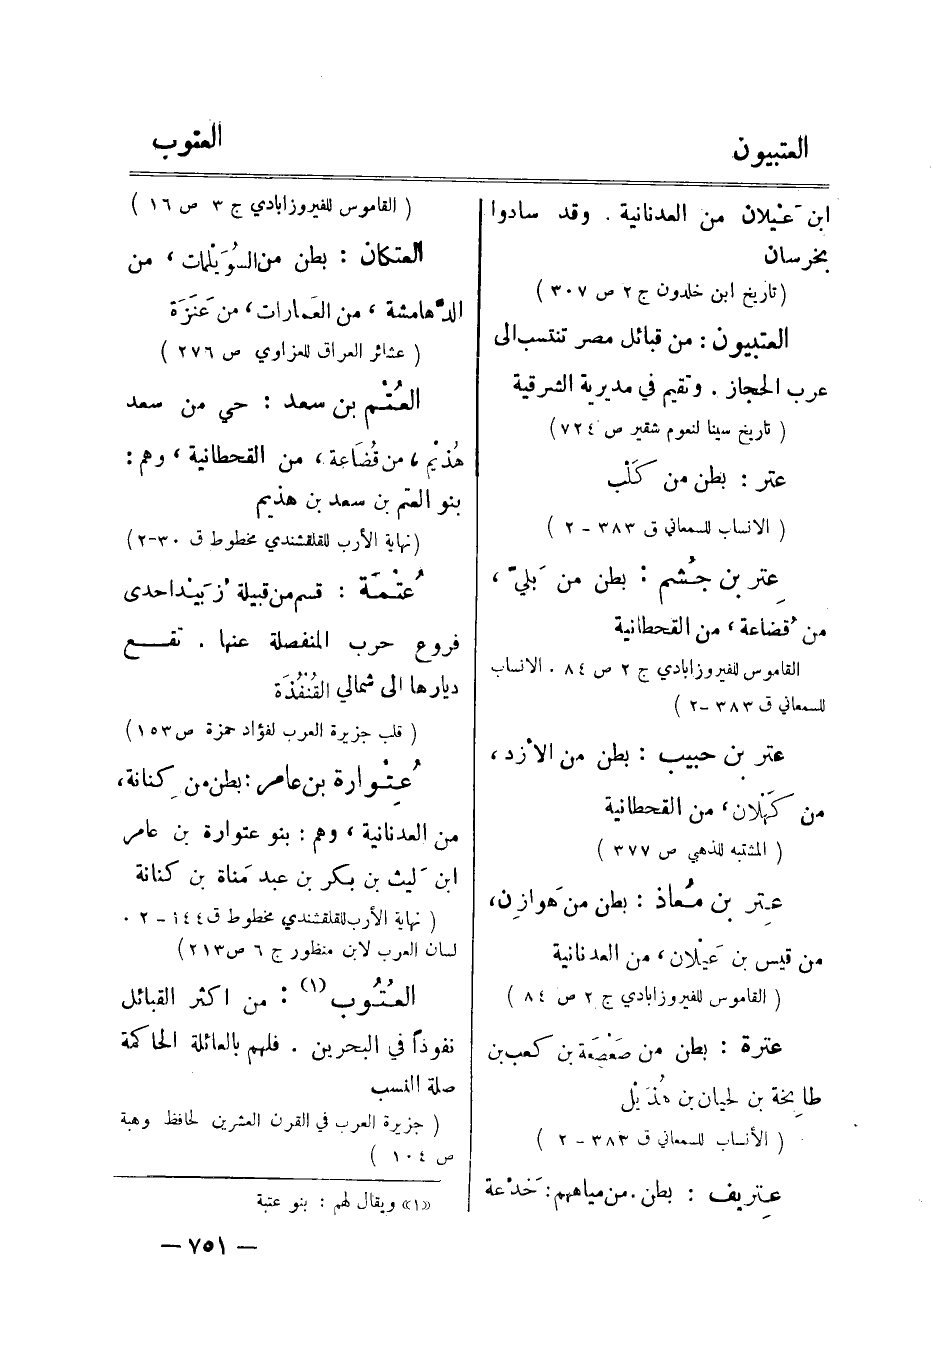 العتبيون
العتوب
ابن عَيْلان من العدنانية . وقد سادوا
بخرسان
( تاريخ ابن خلدون ج ٢ ص ٣٠٧ )
العتبيون : من قبائل مصر تنتسب الى
عرب الحجاز . وتقيم في مديرية الشرقية
( تاريخ سينا لنعوم شقير ص ٧٢٤ )
عتر : بطن من كَلْب
( الانساب للسمعاني ق ٣٨٣ - ٢ )
عِتر بن جُشم : بطن من بَليّ ،
من قُضاعة ، من القحطانية
القاموس للفيروزابادي ج ٢ ص ٨٤ . الانساب
للسمعاني ق ٣٨٣ - ٢ )
عتر بن حبيب : بطن من الأزد ،
من كَهْلان ، من القحطانية
( المشتبه للذهبي ص ٣٧٧ )
عِتر بن مُعاذ : بطن من هَوازِن ،
من قيس بن عَيْلان ، من العدنانية
( القاموس للفيروزابادي ج ٢ ص ٨٤ )
عترة : بطن من صَعْصَعَة بن كعب بن
طابِخة بن لحيان بن هُذَيْل
( الأنساب للسمعاني ق ٣٨٣ - ٢ )
عِتريف : بطن . من مياههم : خَدعة
( القاموس للفيروزابادي ج ٣ ص ١٦ )
العتكان : بطن من السُوَيْلمات ، من
الدَّهامشة ، من العَمارات ، من عَنَزَة
( عشائر العراق للعزاوي ص ٢٧٦ )
العُتْم بن سعد : حي من سعد
هُذَيْم ، من قُضَاعة ، من القحطانية ، وهم :
بنو العتم بن سعد بن هذيم
( نهاية الأرب للقلقشندي مخطوط ق ٣٠-٢ )
عُتْمَة : قسم من قبيلة زُبَيْد احدى
فروع حرب المنفصلة عنها . تقع
ديارها الى شمالي القُنْفُذَة
( قلب جزيرة العرب لفؤاد حمزة ص ١٥٣ )
عُتْوارة بن عامر : بطن من كِنانة ،
من العدنانية ، وهم : بنو عتوارة بن عامر
ابن لَيث بن بكر بن عبد مَناة بن كنانة
( نهاية الأرب للقلقشندي مخطوط ق ١٤٤ - ٢ .
لسان العرب لابن منظور ج ٦ ص ٢١٣ )
العُتُوب (١) : من اكثر القبائل
نفوذاً في البحرين . فلهم بالعائلة الحاكمة
صلة النسب
( جزيرة العرب في القرن العشرين لحافظ وهبة
ص ١٠٤ )
«١» ويقال لهم : بنو عتبة
— ٧٥١ —